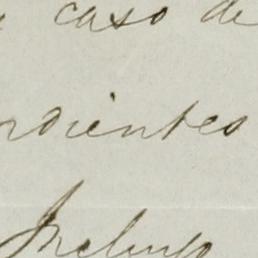 caso de
rdientes
Incluso